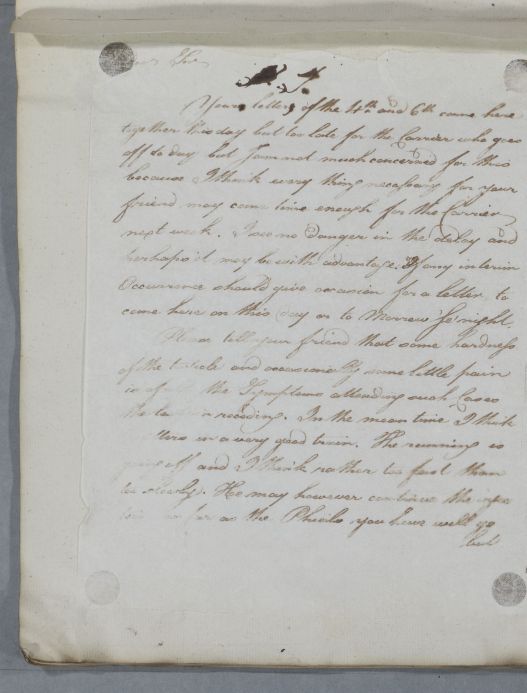 Sir
Your letters of the 4th and 6th came here
together this day but too late for the Carrier who goes
off to day but I am not much concerned for this
because I think every thing necessary for your
friend may come time enough for the Carrier
next week. I see no danger in the delay and
perhaps it may be with advantage. If any interim
Occurrence should give occasion for a letter, to
come here on this day or to Morrow Se'night.
Please tell your friend that some hardness
of the and occasionally some little pain
is the Symptoms attending such Cases
In the mean time I think
in a very good train. The running is
going off and I think rather too fast than
too slowly. He may however continue the
as the Phials you have will go
but